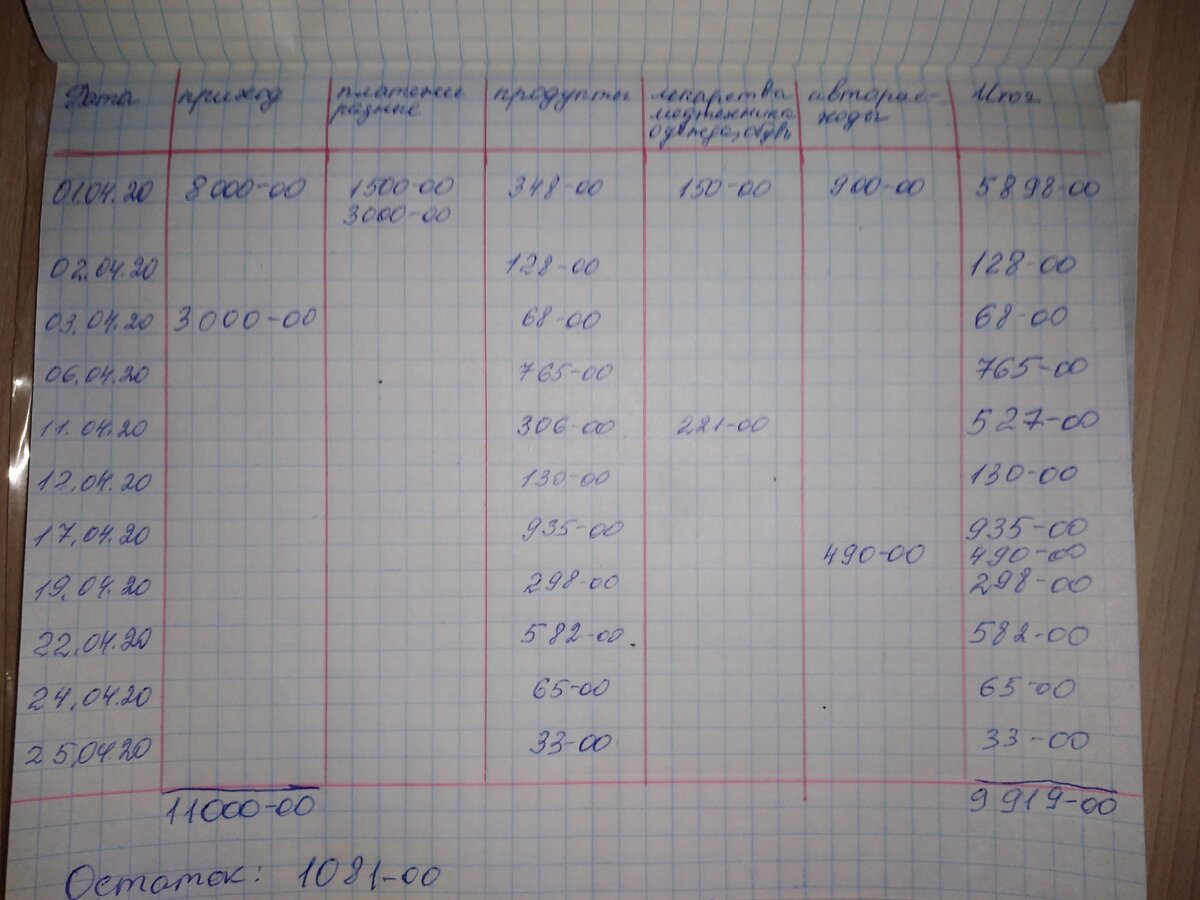 Дата приход платежи разные продукты лекарства медтехника одежда, обувь авторас-ходы Итог
01.04.20 8000-00 1500-00 348-00 150-00 900-00 5898-00
3000-00
02.04.20 128-00 128-00
03.04.20 3000-00 68-00 68-00
06.04.20 765-00 765-00
11.04.20 306-00 221-00 527-00
12.04.20 130-00 130-00
17.04.20 935-00 935-00
490-00 490-00
19.04.20 298-00 298-00
22.04.20 582-00 582-00
24.04.20 65-00 65-00
25.04.20 33-00 33-00
11000-00 9919-00
Остаток: 1081-00